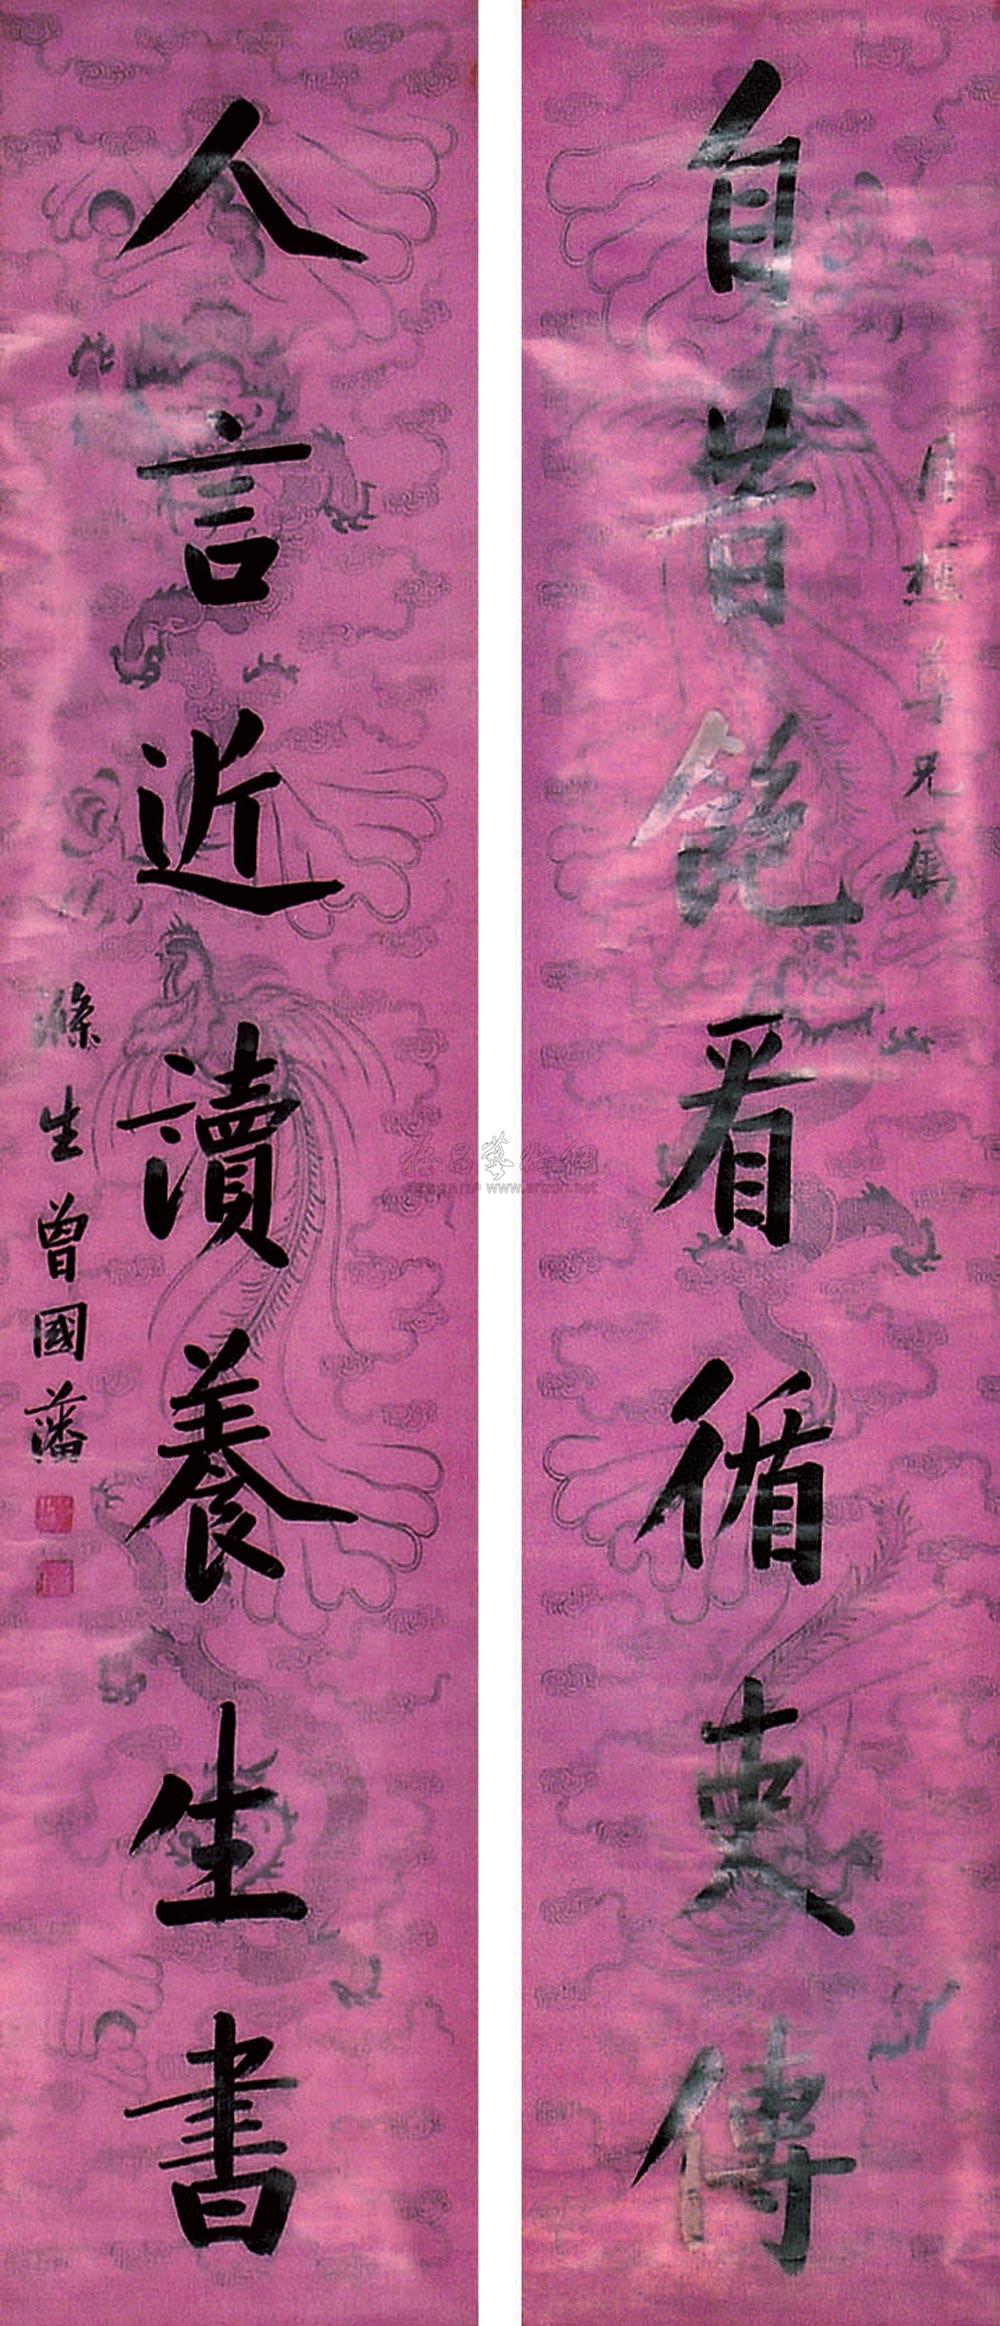 自昔飽看循吏傳
尊兄屬
人言近讀養生書
滌生曾國藩
www.artron.net